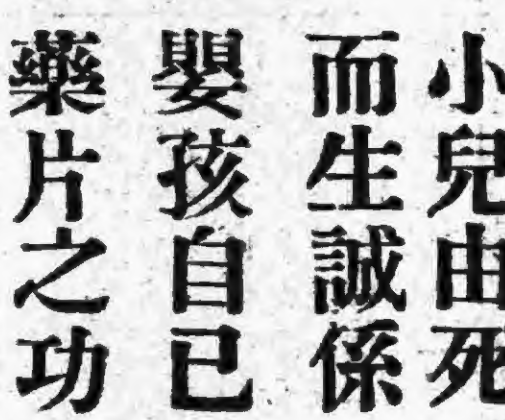 小兒由死
而生誠係
嬰孩自已
藥片之功